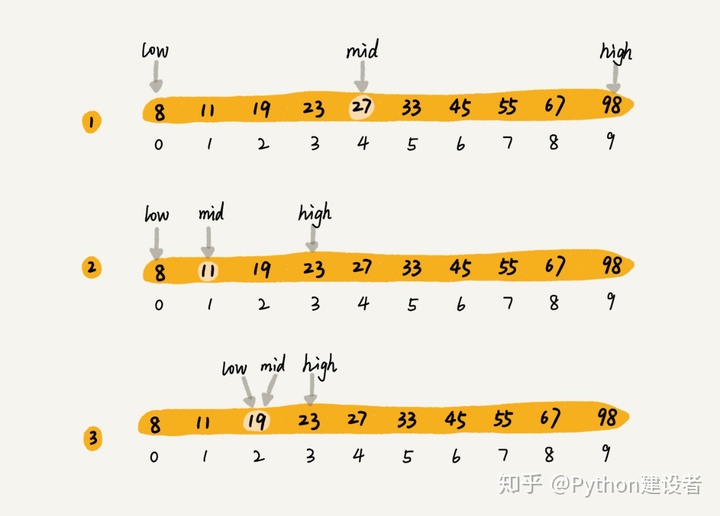 low mid high
1 8 11 19 23 27 33 45 55 67 98
0 1 2 3 4 5 6 7 8 9
low mid high
2 8 11 19 23 27 33 45 55 67 98
0 1 2 3 4 5 6 7 8 9
low mid high
3 8 11 19 23 27 33 45 55 67 98
0 1 2 3 4 5 6 7 8 9
知乎 @Python建设者